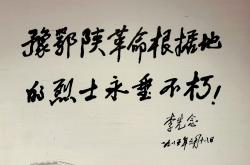 豫鄂陕革命根据地
的烈士永垂不朽！
李先念
一九八五年三月十八日